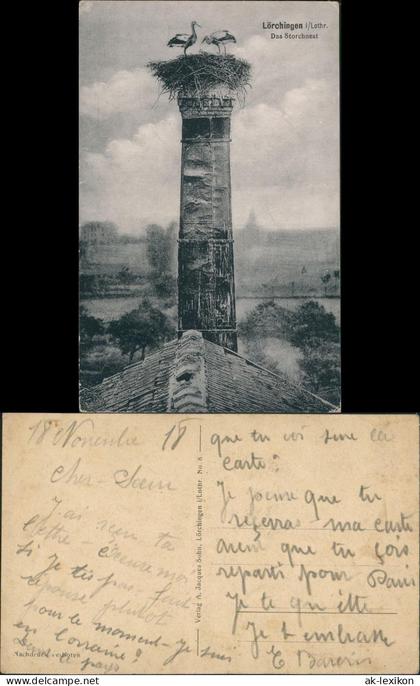 Lörchingen i/Lothr.
Das Storchnest
18 Novembre 18
Cher Sœur
J'ai reçu ta
lettre
si je
réponse plutôt
pour le moment je suis
en Lorraine
Dans le pays
Nachdruck verboten
Verlag A. Jacques Sohn, Lörchingen i/Lothr. No. 8
que tu voi sure la
carte
Je pense que tu
recevras ma carte
avent que tu sois
reparti pour Paris
Je te quitte
Je t'embrasse
E
ak-lexikon.com